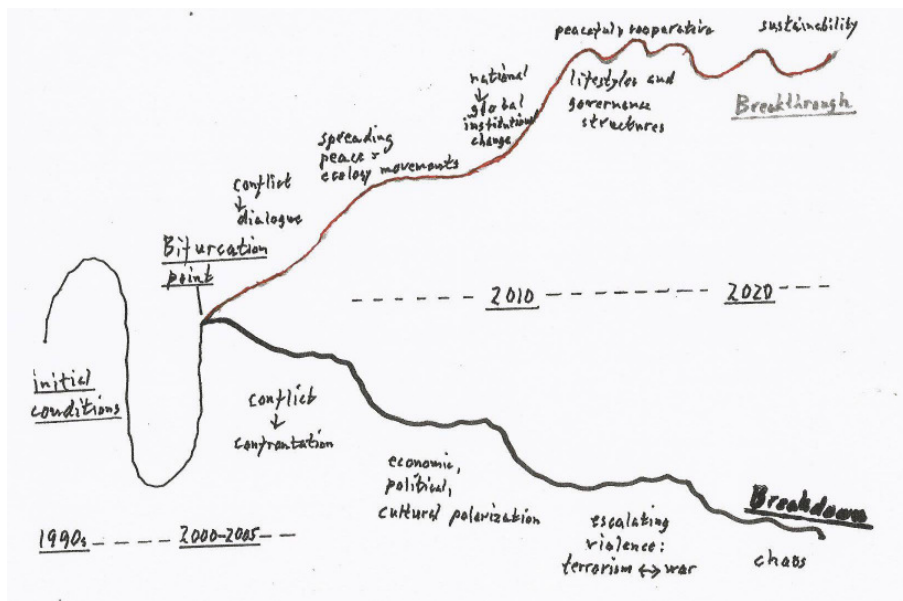 peaceful, cooperative
sustainability
lifestyles and
governance
structures
Breakthrough
national
↓
global
institutional
change
spreading
peace +
ecology movements
conflict
↓
dialogue
Bifurcation
point
2010
2020
initial
conditions
conflict
↓
confrontation
economic,
political,
cultural polarization
escalating
violence:
terrorism ↔ war
Breakdown
chaos
1990s
2000-2005